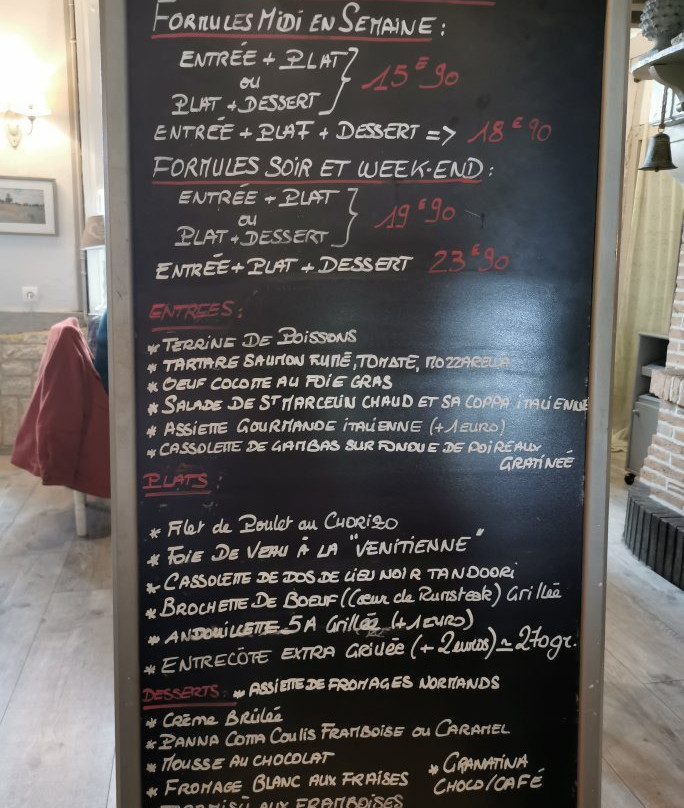 FORMULES MIDI EN SEMAINE :
ENTRÉE + PLAT
ou
PLAT + DESSERT
15€90
ENTRÉE + PLAT + DESSERT => 18€90
FORMULES SOIR ET WEEK-END :
ENTRÉE + PLAT
ou
PLAT + DESSERT
19€90
ENTRÉE + PLAT + DESSERT 23€90
ENTREES :
* TERRINE DE POISSONS
* TARTARE SAUMON FUMÉ, TOMATE, MOZZARELLA
* OEUF COCOTTE AU FOIE GRAS
* SALADE DE ST MARCELIN CHAUD ET SA COPPA ITALIENNE
* ASSIETTE GOURMANDE ITALIENNE (+1EURO)
* CASSOLETTE DE GAMBAS SUR FONDUE DE POIREAUX
GRATINEÉ
PLATS :
* Filet de Poulet au CHORIZO
* FOIE DE VEAU À LA "VENITIENNE"
* CASSOLETTE DE DOS DE LIEU NOIR TANDOORI
* BROCHETTE DE BOEUF ((Cœur de Rumsteak) Grillée
* ANDOUILLETTE 5A Grillée (+1EURO)
* ENTRECÔTE EXTRA GRILLÉE (+2euros) ≃ 270gr.
DESSERTS : * ASSIETTE DE FROMAGES NORMANDS
* CRÈME BRÛLÉE
* PANNA COTTA COULIS FRAMBOISE OU CARAMEL
* MOUSSE AU CHOCOLAT
* FROMAGE BLANC AUX FRAISES
* GRANATINA
CHOCO/CAFÉ
TIRAMISU AUX FRAMBOISES